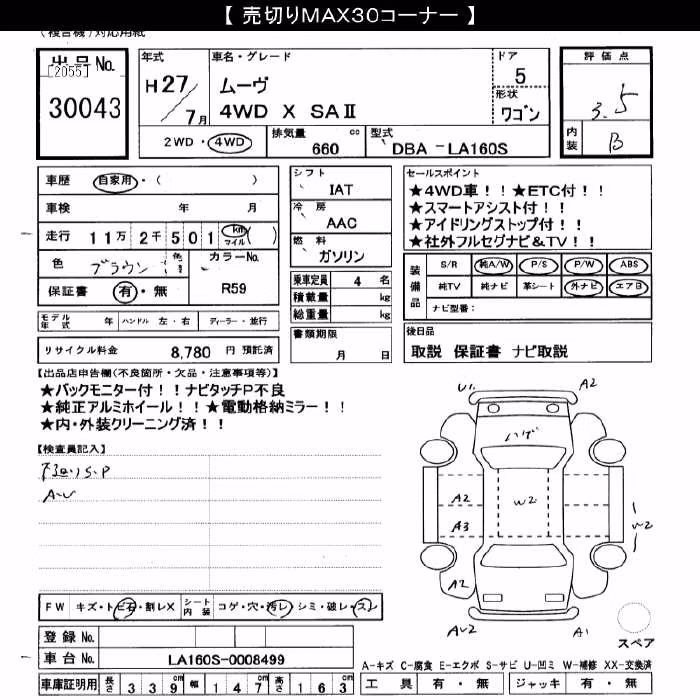 【 売切りMAX30コーナー 】
(複合機)対応用紙
出品No.
[2055]
30043
年式
H27/7月
車名・グレード
ムーヴ
4WD X SAⅡ
ドア
5
形状
ワゴン
2WD・4WD
排気量 cc
660
型式
DBA -LA160S
評価点
3.5
内装
B
車歴 自家用・( )
車検 年 月
走行 11万2千501 km マイル ( )
色 ブラウン 色替 カラーNo.
保証書 有・無 R59
モデル年式 年 ハンドル 左・右 ディーラー・並行
リサイクル料金 8,780 円 預託済
シフト
IAT
冷房
AAC
燃料
ガソリン
乗車定員 4 名
積載量 kg
総重量 kg
書類期限
月 日
セールスポイント
★4WD車！！★ETC付！！
★スマートアシスト付！！
★アイドリングストップ付！！
★社外フルセグナビ&TV！！
装備品
S/R 純A/W P/S P/W ABS
純TV 純ナビ 革シート 外ナビ エアB
ナビ型番：
後日品
取説 保証書 ナビ取説
【出品店申告欄(不良箇所・欠品・注意事項等)】
★バックモニター付！！ナビタッチP不良
★純正アルミホイール！！★電動格納ミラー！！
★内・外装クリーニング済！！
【検査員記入】
S.P
A-U
U1 A2
ハゲ
A2 W2
A3 W2
A2
A1
スペア
FW キズ・トビ石・割レX シート内装 コゲ・穴・汚レ・シミ・破レ・スレ
登録 No.
車台 No. LA160S-0008499
車庫証明用 長さ 339cm 幅 147cm 高さ 163cm
A-キズ C-腐食 E-エクボ S-サビ U-凹ミ W-補修 XX-交換済
工具 有・無 ジャッキ 有・無